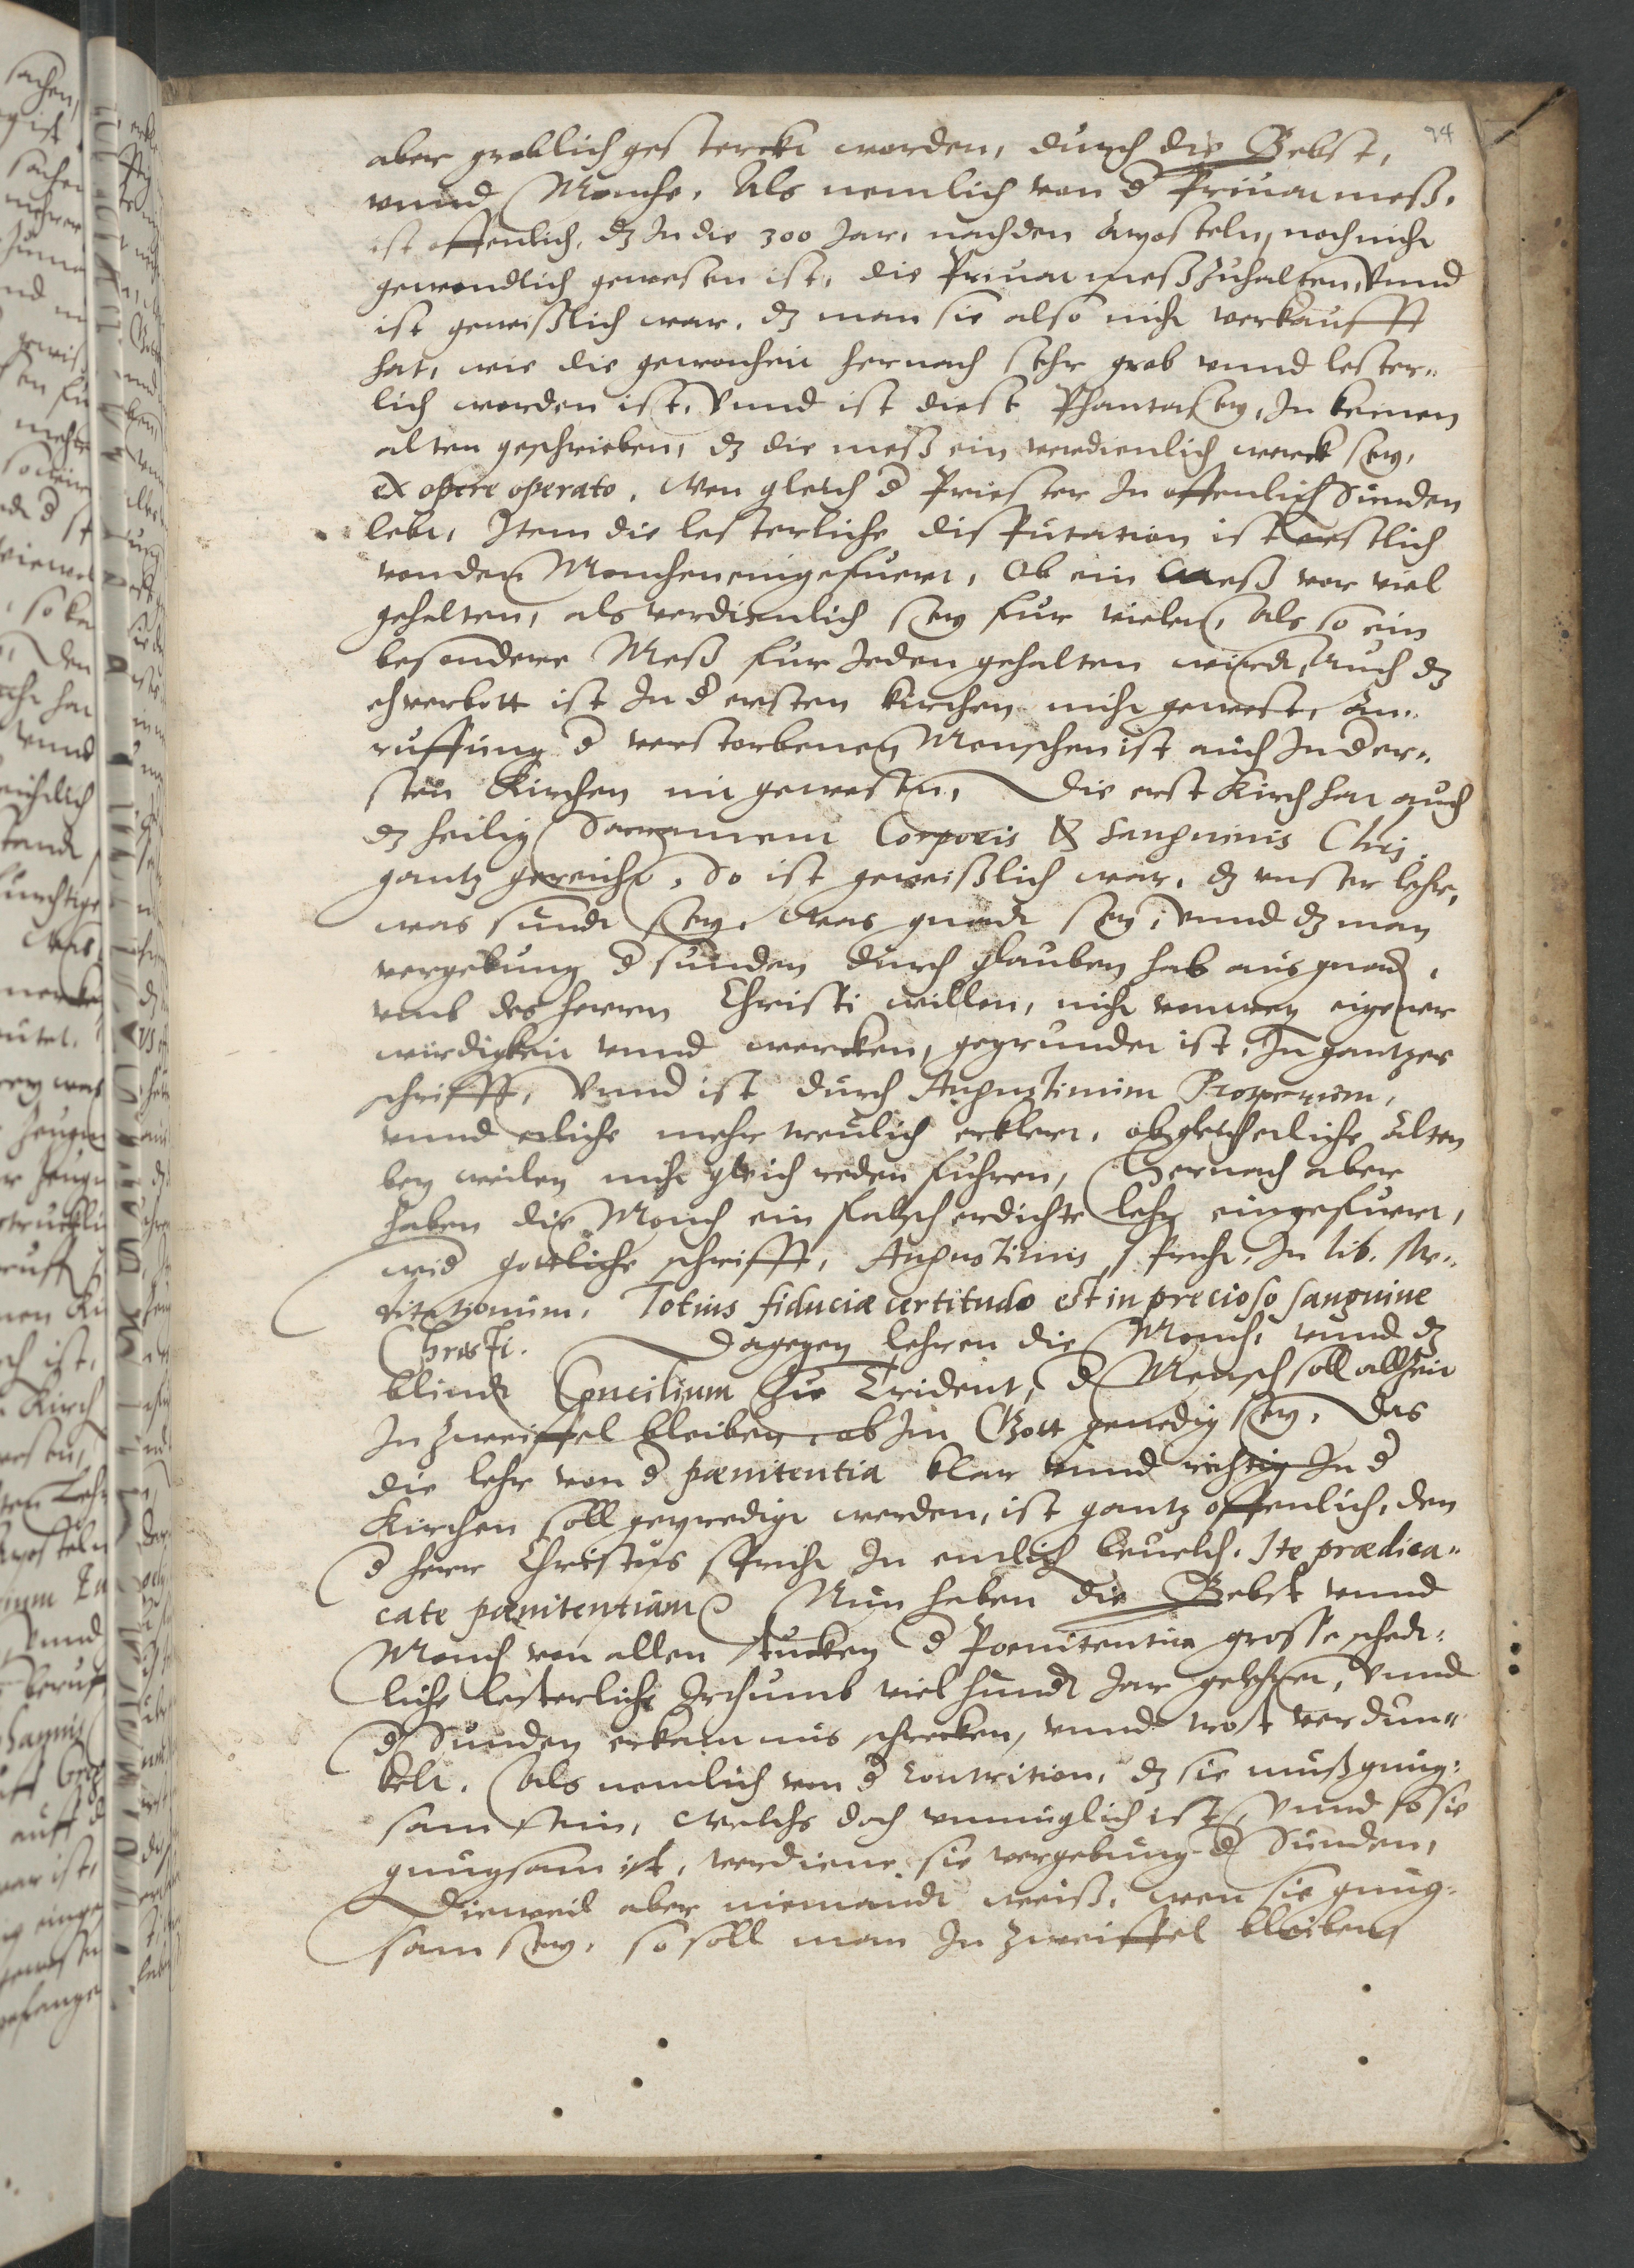 94
aber groblich gesterckt worden, durch die Bebst,
vnnd Monche. Als nemlich von d Priuat meß.
ist offenlich, dz In die 300 Jar, nach den Aposteln, noch nicht
gewondlich gewesen ist, die Priuat meß zuhalten, Vnnd
ist gewißlich war, dz man sie also nicht verkaufft
hat, wie die gewonheit hernach sehr grob vnnd lester-
lich worden ist, Vnnd ist diese Phantasey, In keinen
alten geschrieben, dz die meß ein verdienlich werck sey,
ex opere operato, Wen gleich d Priester In offenlich Sunden
lebt, Item die lesterliche disputation ist erstlich
von den Monchen eingefuert, Ob ein Meß vor viel
gehalten, als verdienlich sey fur vielen, Als so ein
besondere Meß fur Jeden gehalten wirdt, Auch dz
ehverbott ist In d ersten kirchen nicht gewest, An-
ruffung d verstorbenen Menschen ist auch In der er-
sten Kirchen nit gewesen, Die erst Kirch hat auch
dz heilig Sacrament Corporis & Sanguinis Chri.
gantz gereicht, So ist gewißlich war, dz vnser lehr,
was sundt sey, was gnadt sey, vnnd dz man
vergebung d sunden durch glauben hab aus gnad,
vmb des herrn Christi willen, nicht vonweg eigener
wirdigkeit vnnd wercken, gegrundet ist, In gantzer
schrifft, Vnnd ist durch Augustinum Prosperum,
vnnd etliche mehr treulich erklert, obgleich etliche Alten
bey weilen nicht gleich reden fuhren, Hernach aber
haben die Monch ein falsch erdichte lehr eingefuert,
wid gottliche schrifft, Augustinus spricht, In lib. Me-
ditationum, Totius fiduciæ certitudo est in precioso sanguine
Christi. Dagegen lehren die Monch, vnnd dz
blindt Concilium zu Trident, d Mensch soll allzeit
In zweiffel bleiben, ob Im Gott genedig sey, Das
die lehr von d pænitentia klar vnnd richtig In d
Kirchen soll gepredigt werden, ist gantz offenlich, den
d herr Christus spricht In entlich beuelch. Ite prædica-
cate pænitentiam Nun haben die Bebst vnnd
Monch von allen stucken d Poenitentia grosse schedt-
liche lesterliche Irthumb viel hundt Jar gelehrt, Vnnd
d Sunden erkantnus schrecken, vnnd trost verdun-
kelt. Als nemlich von d Contrition, dz sie muß gnug-
sam sein, welchs doch vnmuglich ist, Vnnd so sie
gnugsam ist, verdiene sie vergebung d Sunden,
Dieweil aber niemandt weiß, wen sie gnug-
sam sey, so soll man In zweiffel bleiben,